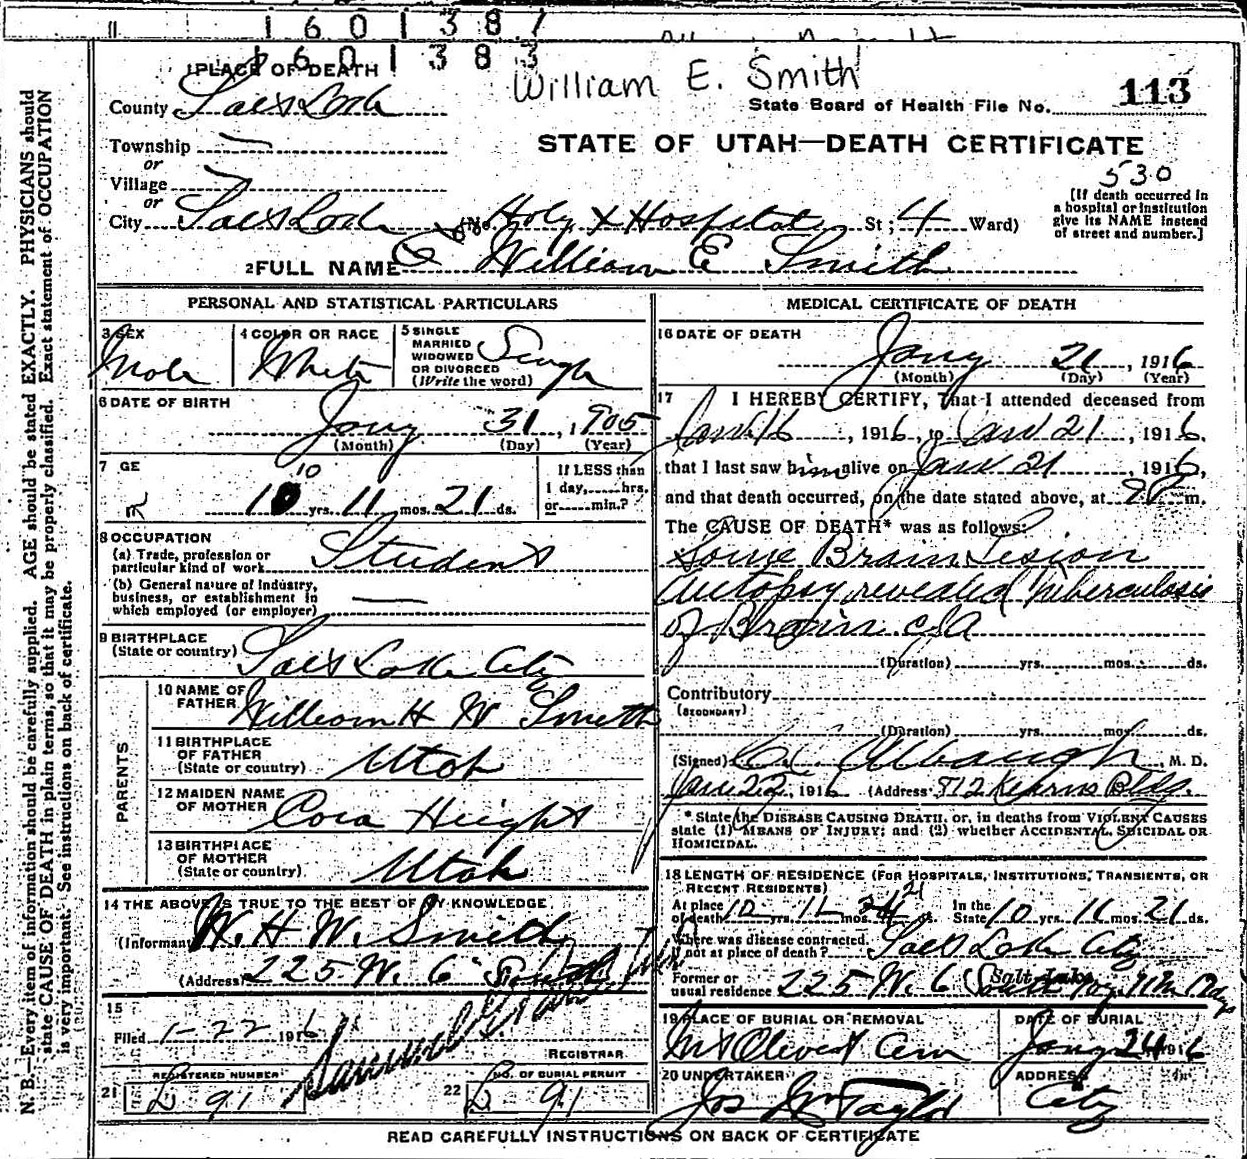 1601387
1601383
William E. Smith
1 PLACE OF DEATH
State Board of Health File No. 113
County Salt Lake
STATE OF UTAH—DEATH CERTIFICATE
Township
or
Village
or
530
[If death occurred in a hospital or institution give its NAME instead of street and number.]
City Salt Lake (No. Holy X Hospital St; 4 Ward)
2 FULL NAME William E Smith
PERSONAL AND STATISTICAL PARTICULARS
3 SEX Male
4 COLOR OR RACE White
5 SINGLE MARRIED WIDOWED OR DIVORCED (Write the word) Single
6 DATE OF BIRTH
Jany 31, 1905
(Month) (Day) (Year)
7 AGE
10 yrs. 11 mos. 21 ds.
If LESS than 1 day,......hrs. or......min.?
8 OCCUPATION
(a) Trade, profession or particular kind of work Student
(b) General nature of Industry, business, or establishment in which employed (or employer)
9 BIRTHPLACE (State or country) Salt Lake City
PARENTS
10 NAME OF FATHER William H W Smith
11 BIRTHPLACE OF FATHER (State or country) Utah
12 MAIDEN NAME OF MOTHER Cora Height
13 BIRTHPLACE OF MOTHER (State or country) Utah
14 THE ABOVE IS TRUE TO THE BEST OF MY KNOWLEDGE
(Informant) W. H W. Smith
(Address) 225 W. 6" South
15
Filed 1-22 1916
REGISTRAR
REGISTERED NUMBER
21 B 91
NO. OF BURIAL PERMIT
22 B 91
MEDICAL CERTIFICATE OF DEATH
16 DATE OF DEATH
Jany 21, 1916
(Month) (Day) (Year)
17 I HEREBY CERTIFY, That I attended deceased from
Jan 16, 1916, to Jan 21, 1916,
that I last saw him alive on Jan 21, 1916,
and that death occurred, on the date stated above, at m.
The CAUSE OF DEATH* was as follows:
Some Brain Lesion
Autopsy revealed Tuberculosis
of Brain
(Duration) yrs. mos. ds.
Contributory
(SECONDARY)
(Duration) yrs. mos. ds.
(Signed) Albaugh, M. D.
Jan 22, 1916 (Address) 712 Kearns Bldg.
* State the DISEASE CAUSING DEATH, or, in deaths from VIOLENT CAUSES state (1) MEANS OF INJURY; and (2) whether ACCIDENTAL, SUICIDAL OR HOMICIDAL.
18 LENGTH OF RESIDENCE (FOR HOSPITALS, INSTITUTIONS, TRANSIENTS, OR RECENT RESIDENTS)
At place of death 10 yrs. 11 mos. 21 ds. In the State 10 yrs. 11 mos. 21 ds.
Where was disease contracted, if not at place of death? Salt Lake City
Former or usual residence 225 W. 6 South Salt Lake
19 PLACE OF BURIAL OR REMOVAL
Mt Olivet Cem
DATE OF BURIAL
Jany 24 1916
20 UNDERTAKER
Jos Wm Taylor
ADDRESS
City
READ CAREFULLY INSTRUCTIONS ON BACK OF CERTIFICATE
N. B.—Every item of information should be carefully supplied. AGE should be stated EXACTLY. PHYSICIANS should
state CAUSE OF DEATH in plain terms, so that it may be properly classified. Exact statement of OCCUPATION
is very important. See instructions on back of certificate.